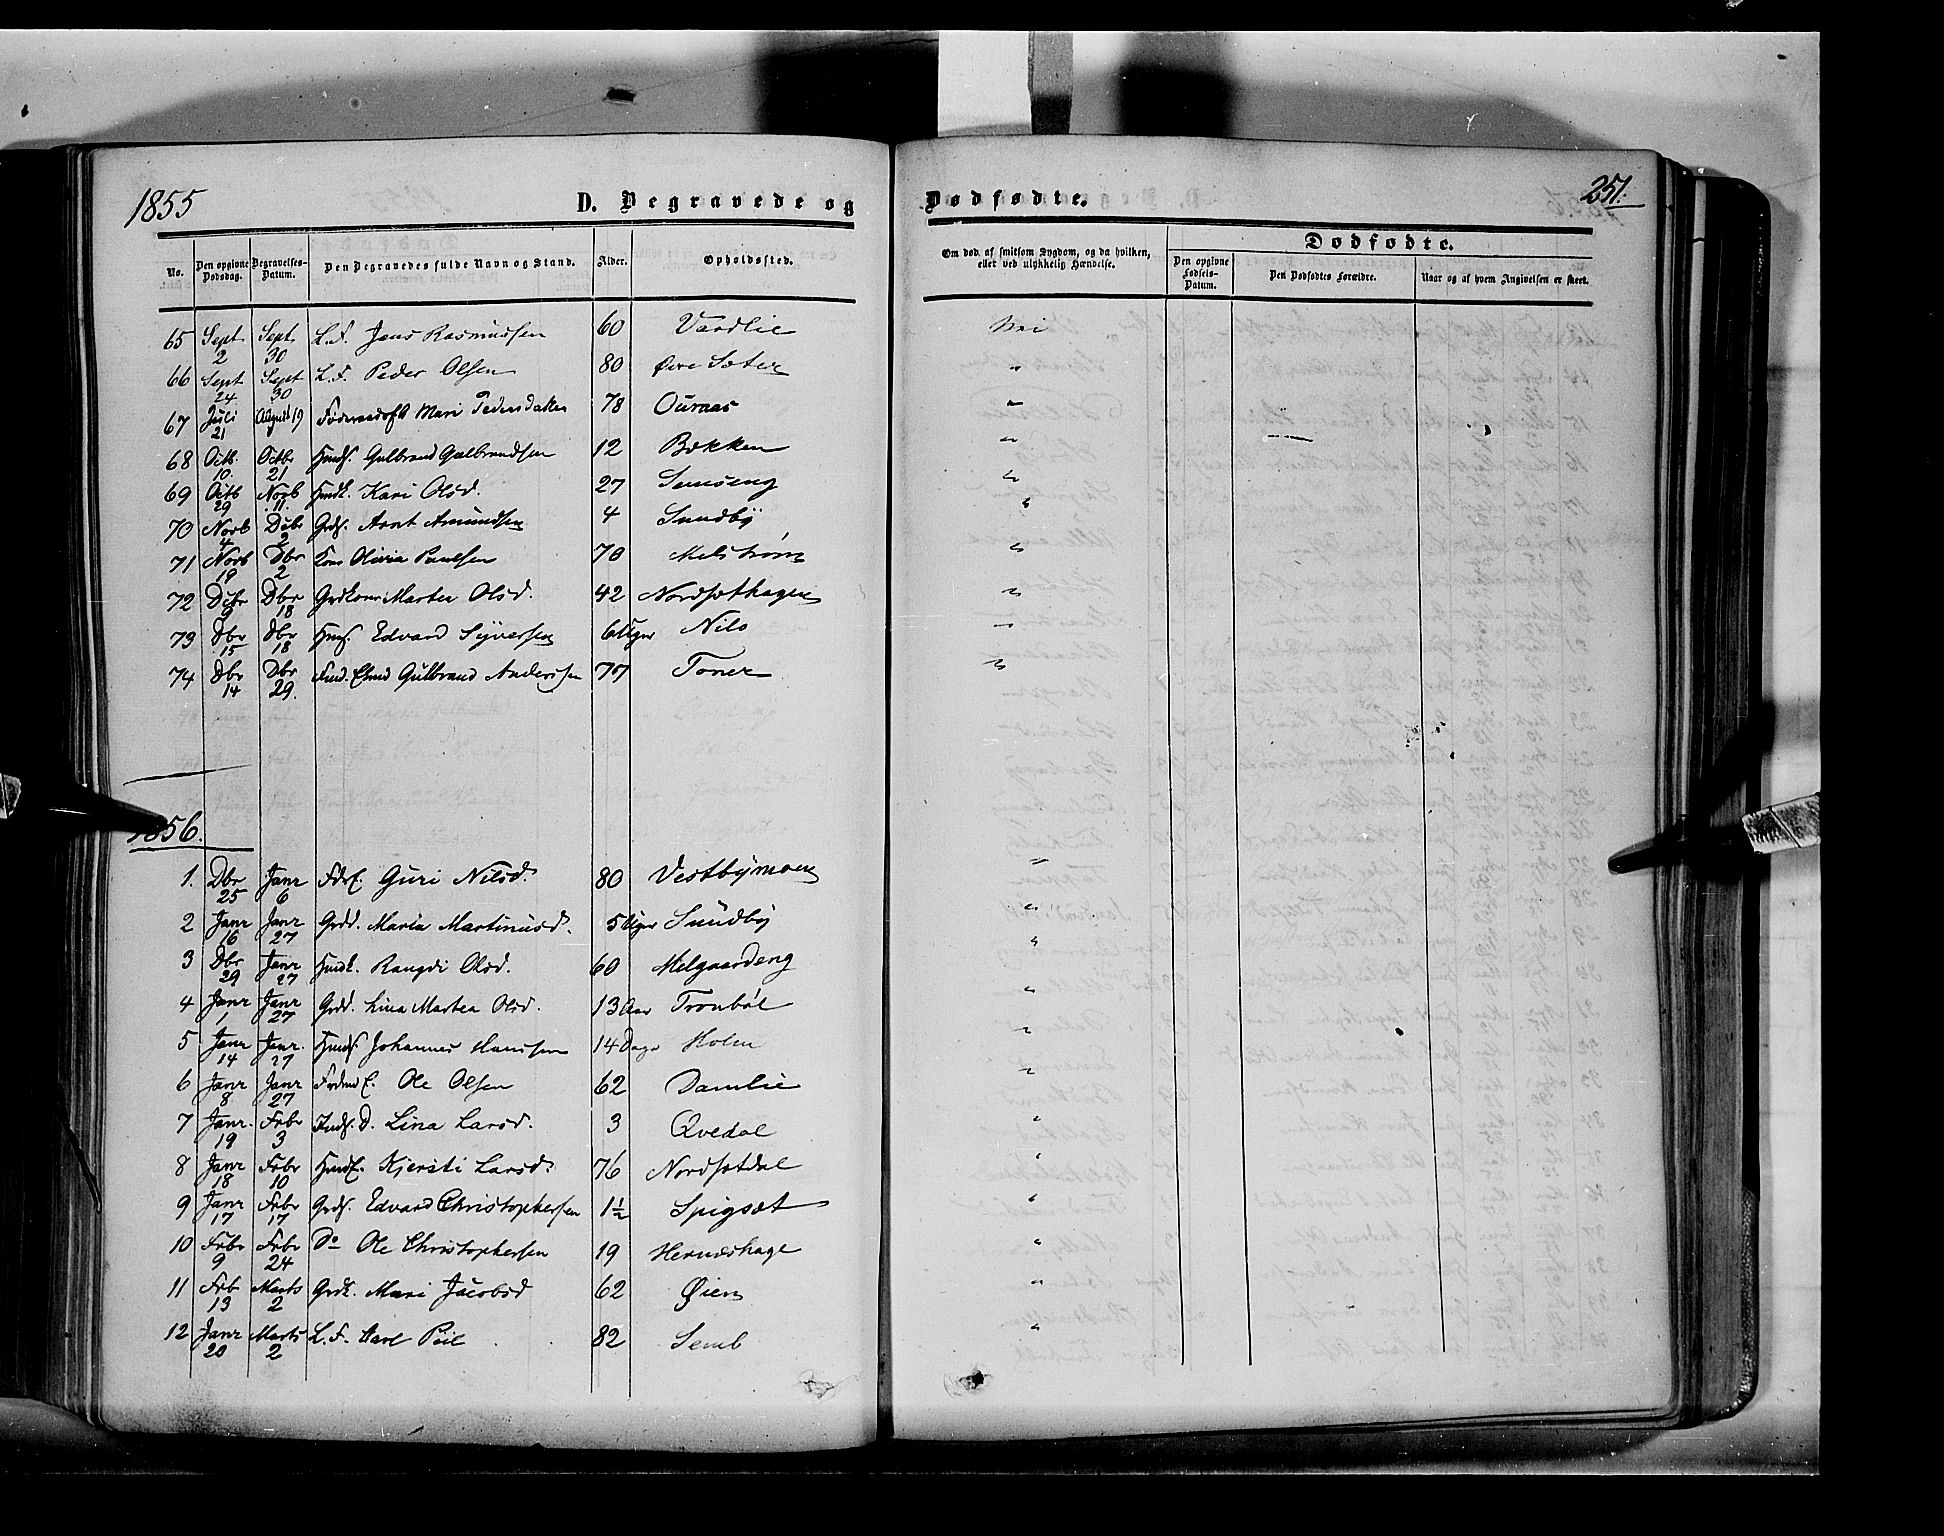 1855
D. Begravede og Dødfødte.
251.
No. Den opgivne Dødsdag. Begravelses-Datum. Den Begravedes fulde Navn og Stand. Alder. Opholdssted.
Om død af smitsom Sygdom, og da hvilken, eller ved ulykkelig Hændelse.
Dødfødte.
Den opgivne Fødsels-Datum. Den Dødfødtes Forældre. Naar og af hvem Angivelsen er skeet.
65 Sept 2 Sept 30 L.F. Jens Rasmussen 60 Vardlie Nei
66 Sept 24 Sept 30 L.F. Peder Olsen 80 Øvre Sæter "
67 Juli 21 August 19 Mari Pedersdatter 78 Ouraas "
68 Octb. 10. Octbr 21 Hmdf. Gulbrand Gulbrandsen 12 Bækken "
69 Octb 29 Novb 11. Hmdk. Kari Olsd. 27 "
70 Novb 4 Dcbr 2 Grdf. Arnt Amundsen 4 Sundby "
71 Novb 19 Dbr 2 Kone Olivia Paulsen 70 Melstrøm "
72 Dcbr 9 Dbr 18 Grdkone Martea Olsd. 42 Nordsæthagen "
73 Dbr 15 Dbr 18 Hmf. Edvard Syversen 6 Uger Nilo "
74 Dbr 14 Dbr 29. Gulbrand Andersen 77 Toner "
1856.
1. Dbr 25 Janr 6 Guri Nilsd. 80 Vestbymoen "
2 Janr 16 Janr 27 Grdd. Maria Martinusd. 5 Uger Sundby "
3 Dbr 29 Janr 27 Hmdk. Rangdi Olsd. 60 Melgaardeng "
4 Janr 1 Janr 27 Grdd. Lina Martea Olsd. 13 Aar Tronbøl "
5 Janr 14 Janr. 27 Hmdf. Johannes Hansen 14 Dage Holm "
6 Janr 8 Janr 27 Ole Olsen 62 Damlie "
7 Janr. 19 Febr 3 Indf. D. Lina Larsd. 3 Qvedal "
8 Janr 18 Febr 10 Kjersti Larsd. 76 Nordsætdal "
9 Janr 17 Febr 17 Grdf. Edvard Christophersen 1½ Spigsæt "
10 Febr 9 Febr 24 Do Ole Christophersen 19 Hernæshage "
11 Feb 13 Marts 2 Grdk. Mari Jacobsd 62 Øien "
12 Janr 20 Marts 2 L.F. Carl Piil 82 Semb "